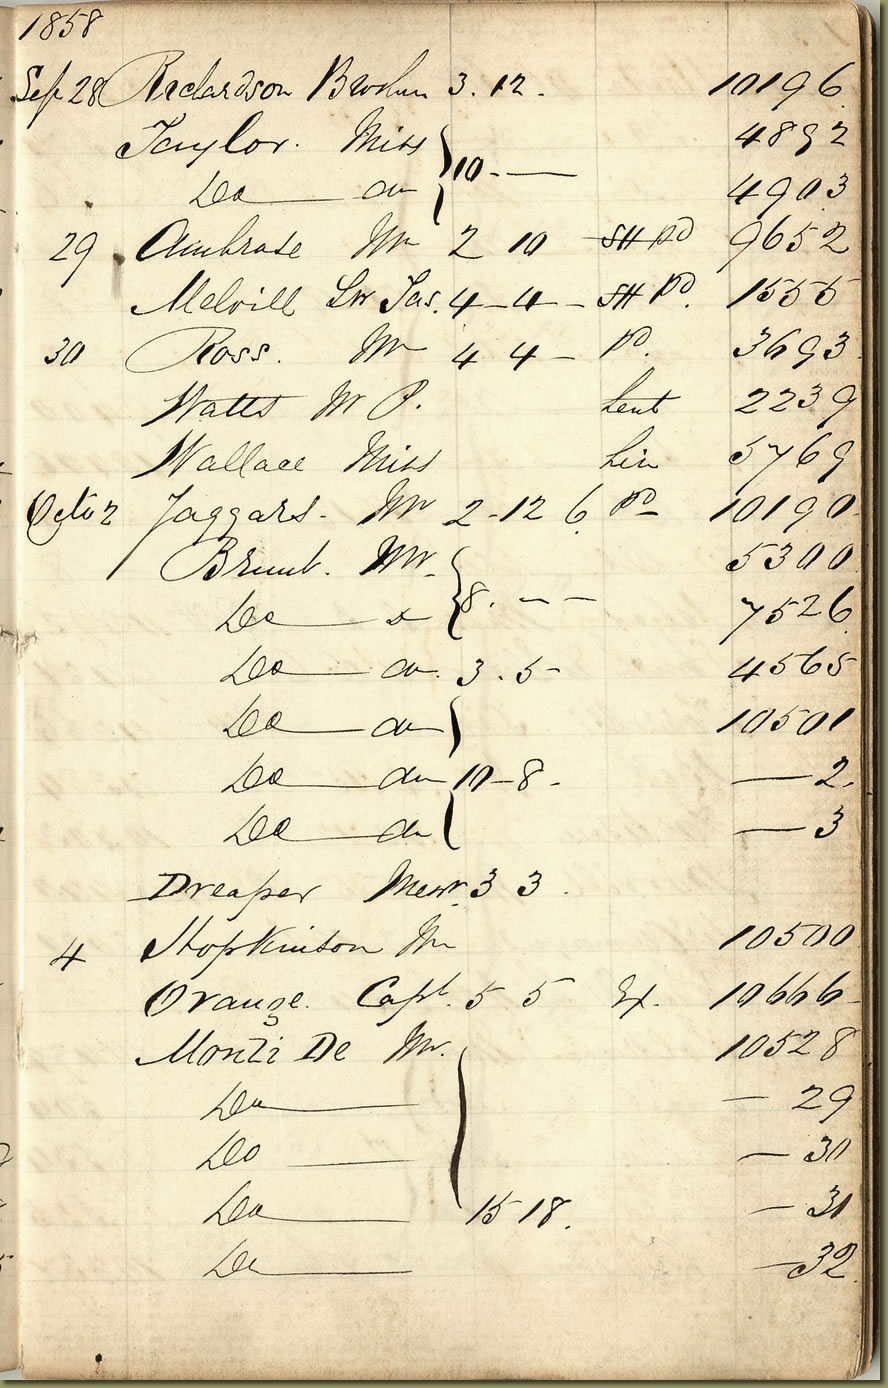 1858
Sep 28 Richardson 3. 12. 10196
Taylor. Miss 4892
Do do 10 - — 4903
29 Ambrose Mr 2 10 9652
Melvill Sir Jas. 4 - 4 - 1555
30 Ross. Mr 4 4 - Pd. 3693
Watts Mr P. Lent 2239
Wallace Miss 5769
Octr 2 Jaggars. Mr 2 - 12 6 Pd 10190
Mr. 5300
Do 8. - - 7526
Do do. 3. 5 - 4565
Do do 10501
Do do 10 - 8 - — 2.
Do do — 3
Dreaper Messrs. 3 3.
4 Hopkinson Mr 10500
Orange. Capt. 5 5 Ex. 10666
Monti De Mr. 10528
Do — 29
Do — 30
Do 15 18. — 31
Do — 32